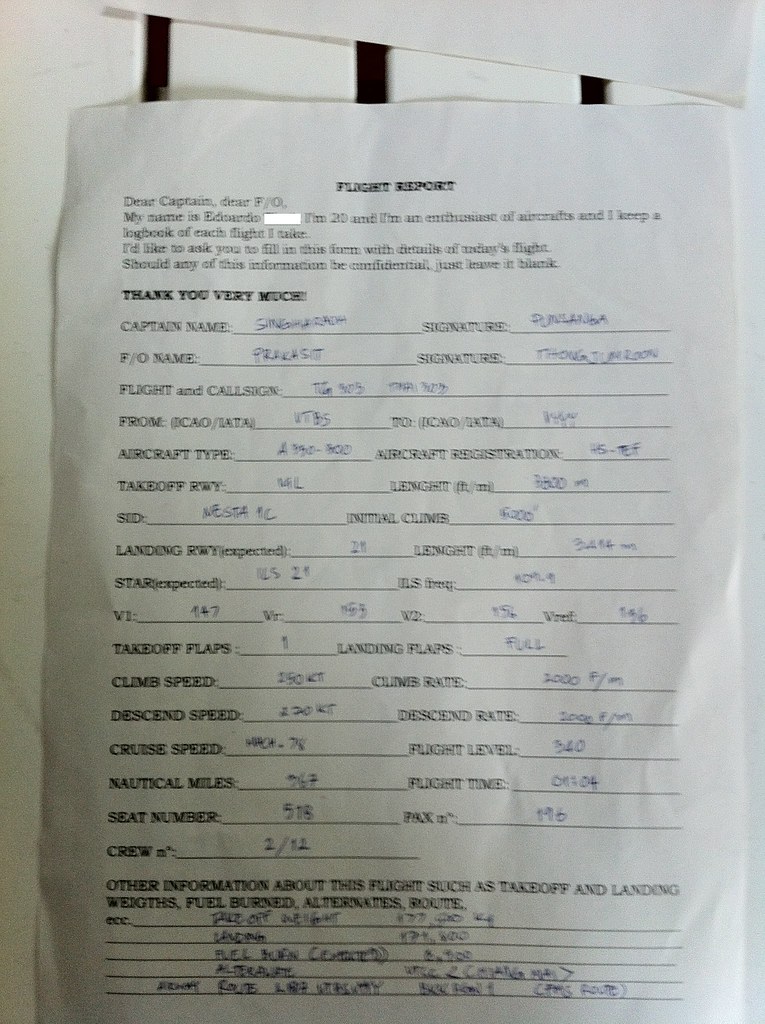 FLIGHT REPORT
Dear Captain, dear F/O,
My name is Edoardo I'm 20 and I'm an enthusiast of aircrafts and I keep a
logbook of each flight I take.
I'd like to ask you to fill in this form with details of today's flight.
Should any of this information be confidential, just leave it blank.
THANK YOU VERY MUCH!
CAPTAIN NAME: SINGHARADH SIGNATURE:
F/O NAME: PRAKASIT SIGNATURE:
FLIGHT and CALLSIGN: TG 303 THAI 303
FROM: (ICAO/IATA) VTBS TO: (ICAO/IATA) VYYY
AIRCRAFT TYPE: A 330-300 AIRCRAFT REGISTRATION: HS-TEF
TAKEOFF RWY: 19L LENGHT (ft/m)
SID: 1C INITIAL CLIMB 6000'
LANDING RWY(expected): 21 LENGHT (ft/m) 3414 m
STAR(expected): ILS 21 ILS freq: 109.9
V1: 147 Vr: 153 V2: 156 Vref: 136
TAKEOFF FLAPS : 1 LANDING FLAPS : FULL
CLIMB SPEED: 250 KT CLIMB RATE: 2000 F/m
DESCEND SPEED: KT DESCEND RATE: F/m
CRUISE SPEED: MACH .78 FLIGHT LEVEL: 340
NAUTICAL MILES: FLIGHT TIME: 01:04
SEAT NUMBER: PAX n°: 196
CREW n°: 2/12
OTHER INFORMATION ABOUT THIS FLIGHT SUCH AS TAKEOFF AND LANDING
WEIGTHS, FUEL BURNED, ALTERNATES, ROUTE,
ecc. TAKE OFF WEIGHT kg
LANDING
FUEL BURN (EXPECTED)
ALTERNATE VTCC < CHIANG MAI >
ROUTE (FMS ROUTE)